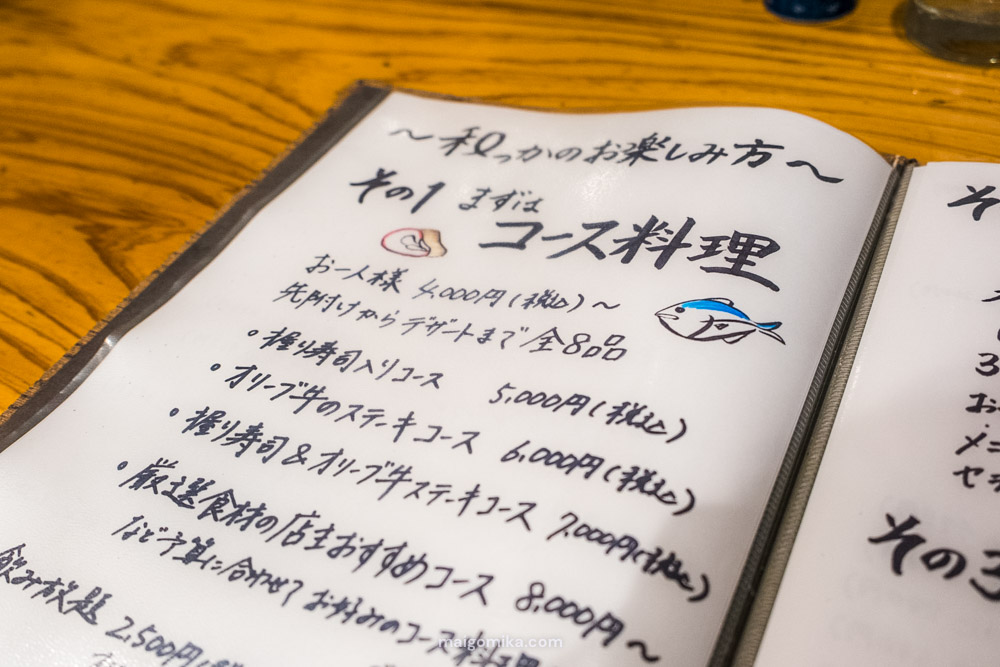 〜秘っかのお楽しみ方〜
その1 まずは
コース料理
お一人様 4,000円(税込)〜
先附けからデザートまで 全8品
• 握り寿司入りコース 5,000円(税込)
• オリーブ牛のステーキコース 6,000円(税込)
• 握り寿司&オリーブ牛ステーキコース 7,000円(税込)
• 厳選食材の店主おすすめコース 8,000円〜
など予算に合わせて お好みのコース料理
飲み放題 2,500円(税
そ
3
お
メニ
セ
その3
maigomika.com